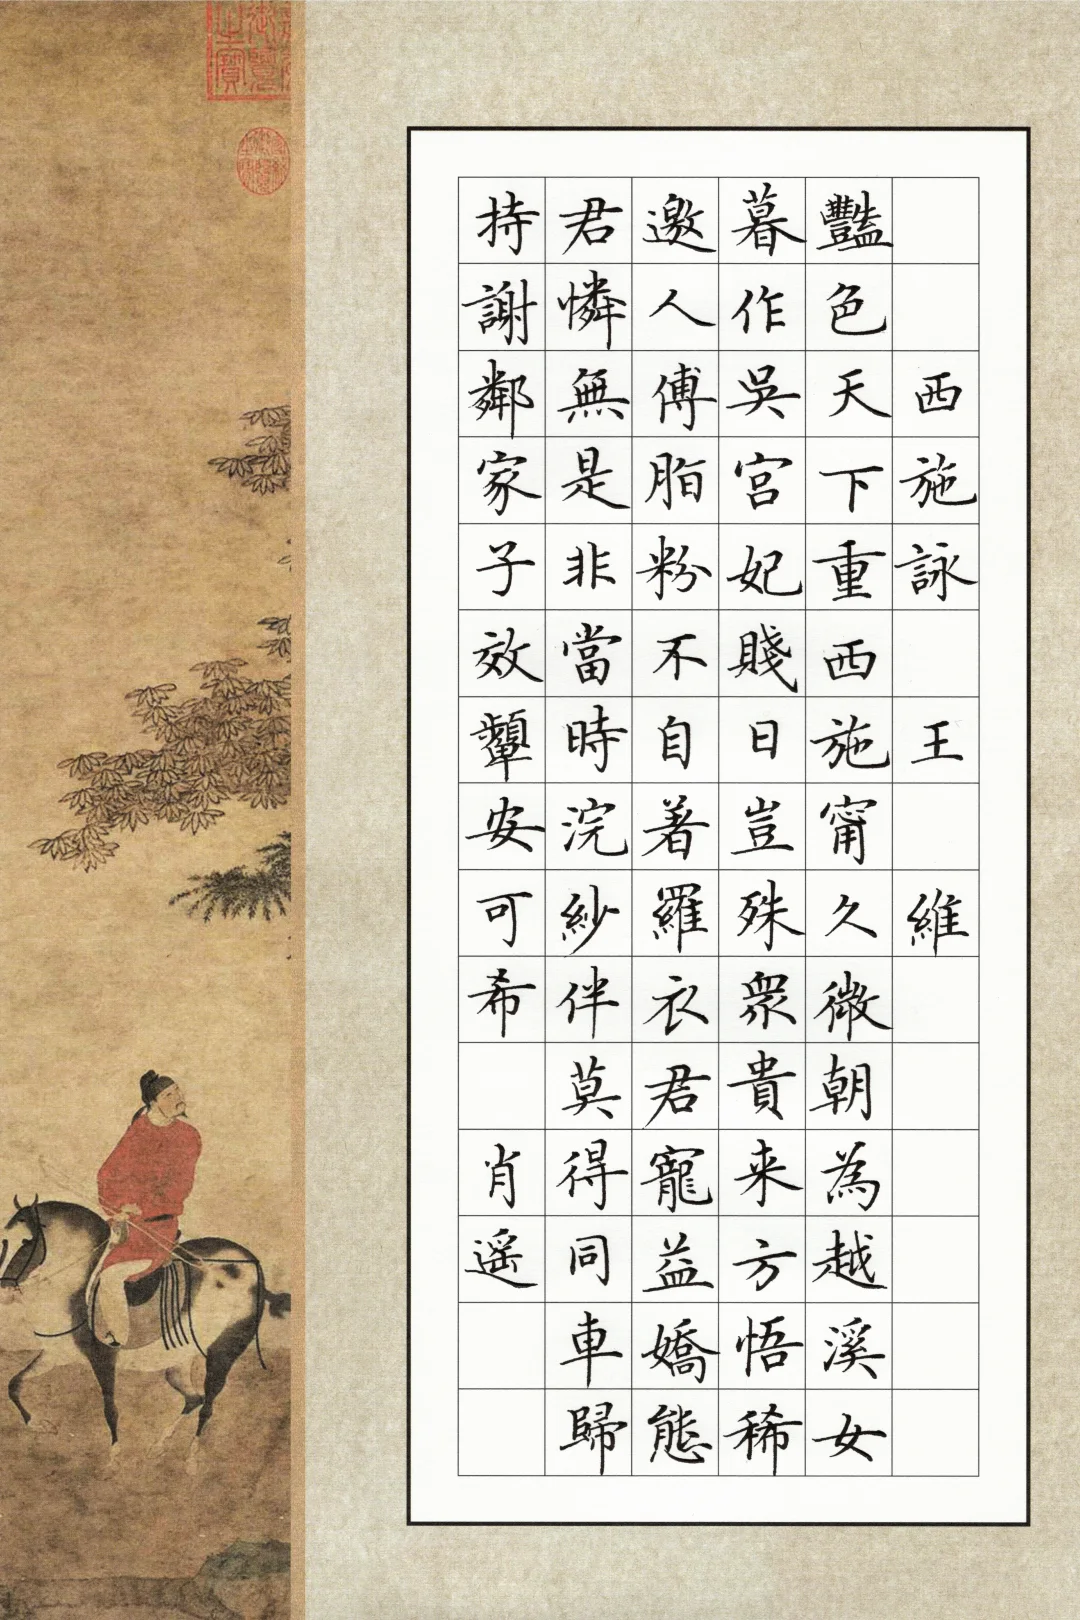 西施詠 王維
豔色天下重西施甯久微朝為越溪女
暮作吳宮妃賤日豈殊眾貴来方悟稀
邀人傅脂粉不自著羅衣君寵益嬌態
君憐無是非當時浣紗伴莫得同車歸
持謝鄰家子效顰安可希 肖遥